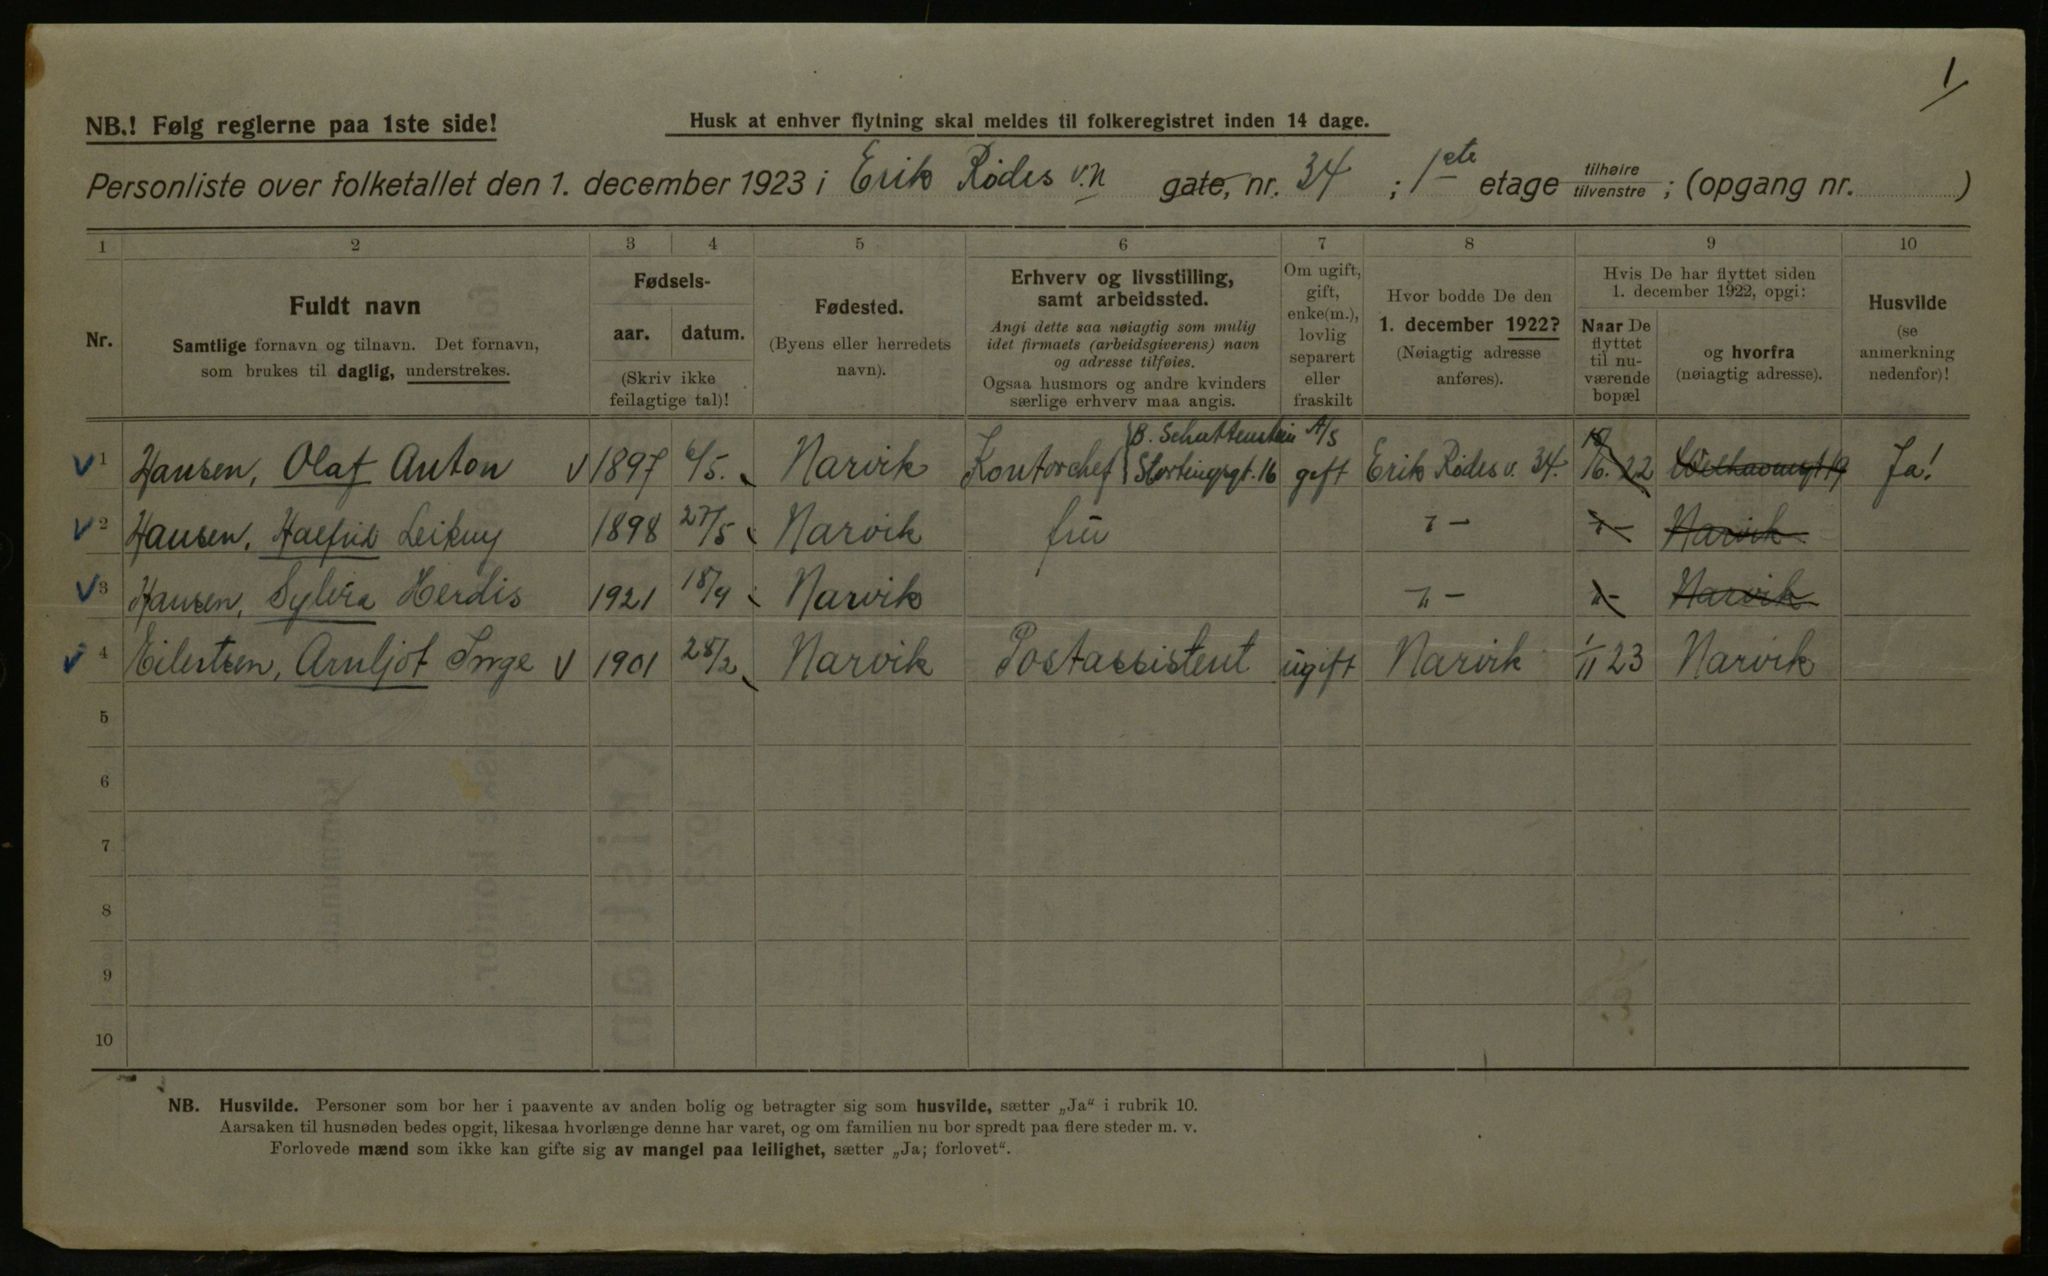 1/
NB.! Følg reglerne paa 1ste side!
Husk at enhver flytning skal meldes til folkeregistret inden 14 dage.
Personliste over folketallet den 1. december 1923 i Erik Rødes v.n gate, nr. 34 ; 1ste etage tilhøire tilvenstre ; (opgang nr. )
1 2 3 4 5 6 7 8 9 10
Nr.
Fuldt navn
Samtlige fornavn og tilnavn. Det fornavn,
som brukes til daglig, understrekes.
Fødsels-
aar. datum.
(Skriv ikke
feilagtige tal)!
Fødested.
(Byens eller herredets
navn).
Erhverv og livsstilling,
samt arbeidssted.
Angi dette saa nøiagtig som mulig
idet firmaets (arbeidsgiverens) navn
og adresse tilføies.
Ogsaa husmors og andre kvinders
særlige erhverv maa angis.
Om ugift,
gift,
enke(m.),
lovlig
separert
eller
fraskilt
Hvor bodde De den
1. december 1922?
(Nøiagtig adresse
anføres).
Hvis De har flyttet siden
1. december 1922, opgi:
Naar De
flyttet
til nu-
værende
bopæl
og hvorfra
(nøiagtig adresse).
Husvilde
(se
anmerkning
nedenfor)!
1 Hansen, Olaf Anton 1897 6/5. Narvik Kontorchef B. Schuttenstein A/S Stortingsgt. 16 gift Erik Rødes v. 34. 22 Ja!
2 Hansen, 1898 27/5 Narvik fru " -  " - Narvik
3 Hansen, Sylvia Herdis 1921 18/9 Narvik " - " - Narvik
4 Eilertsen, Arnljot Inge 1901 28/2 Narvik Postassistent ugift Narvik 1/11 23 Narvik
5
6
7
8
9
10
NB. Husvilde. Personer som bor her i paavente av anden bolig og betragter sig som husvilde, sætter „Ja“ i rubrik 10.
Aarsaken til husnøden bedes opgit, likesaa hvorlænge denne har varet, og om familien nu bor spredt paa flere steder m. v.
Forlovede mænd som ikke kan gifte sig av mangel paa leilighet, sætter „Ja; forlovet“.